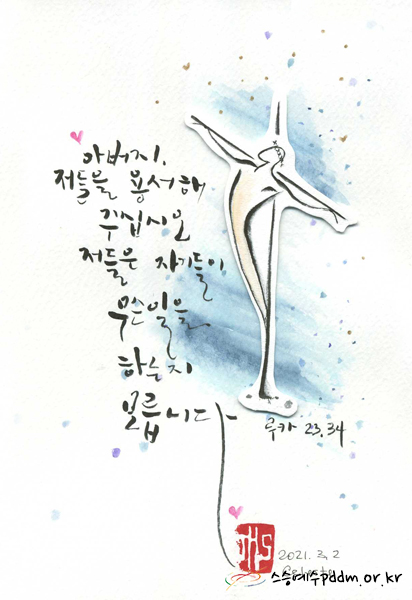 아버지,
저들을 용서해
주십시오
저들은 자기들이
무슨일을
하는지
모릅니다
루카 23,34
IHS
2021. 3. 2
스승예수pddm.or.kr